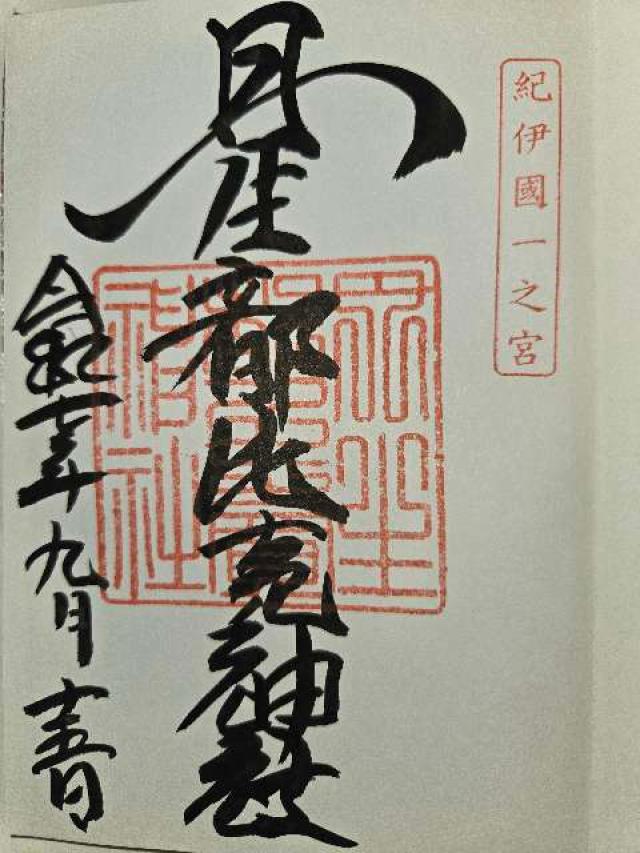 紀伊國一之宮
丹生都比売神社
丹生都比賣神社
令和七年九月十五日